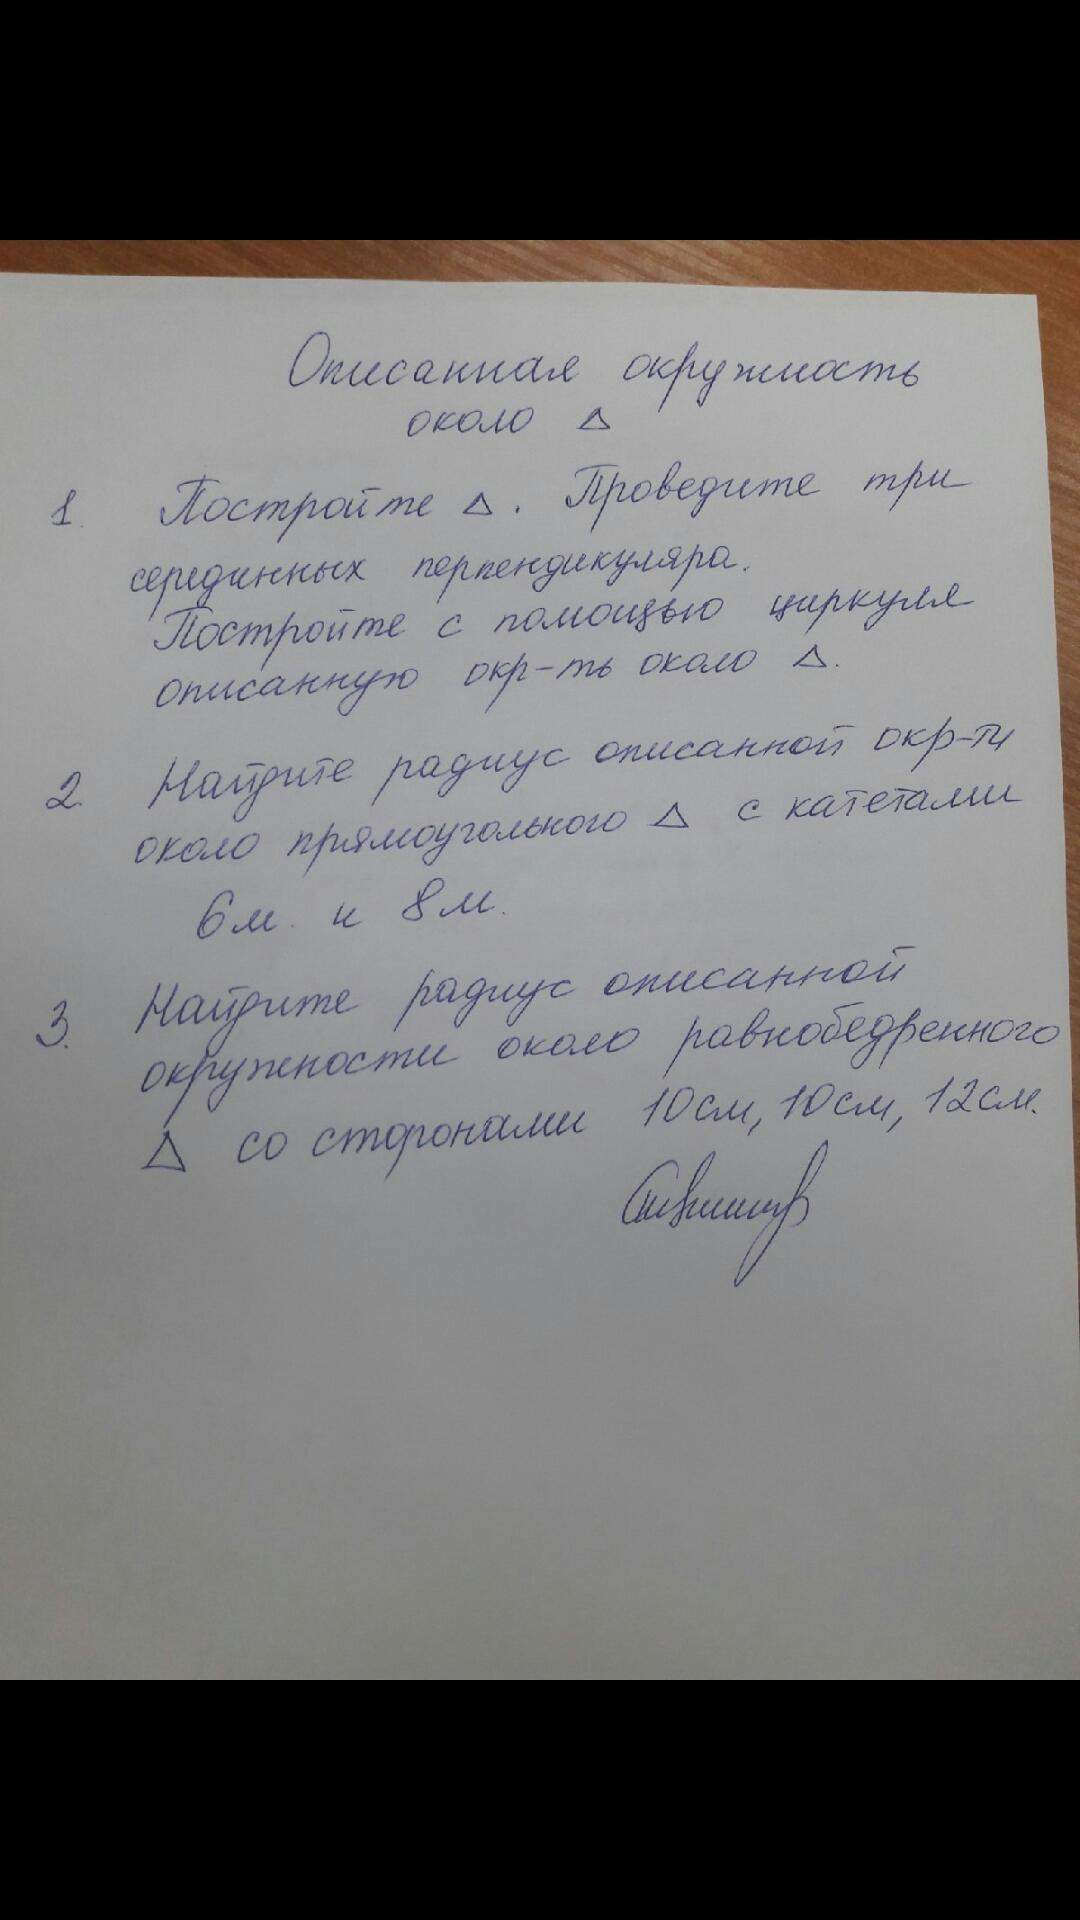 Описанная окружность
около △
1. Постройте △. Проведите три
серединных перпендикуляра.
Постройте с помощью циркуля
описанную окр-ть около △.
2. Найдите радиус описанной окр-ти
около прямоугольного △ с катетами
6м. и 8м.
3. Найдите радиус описанной
окружности около равнобедренного
△ со сторонами 10см, 10см, 12см.